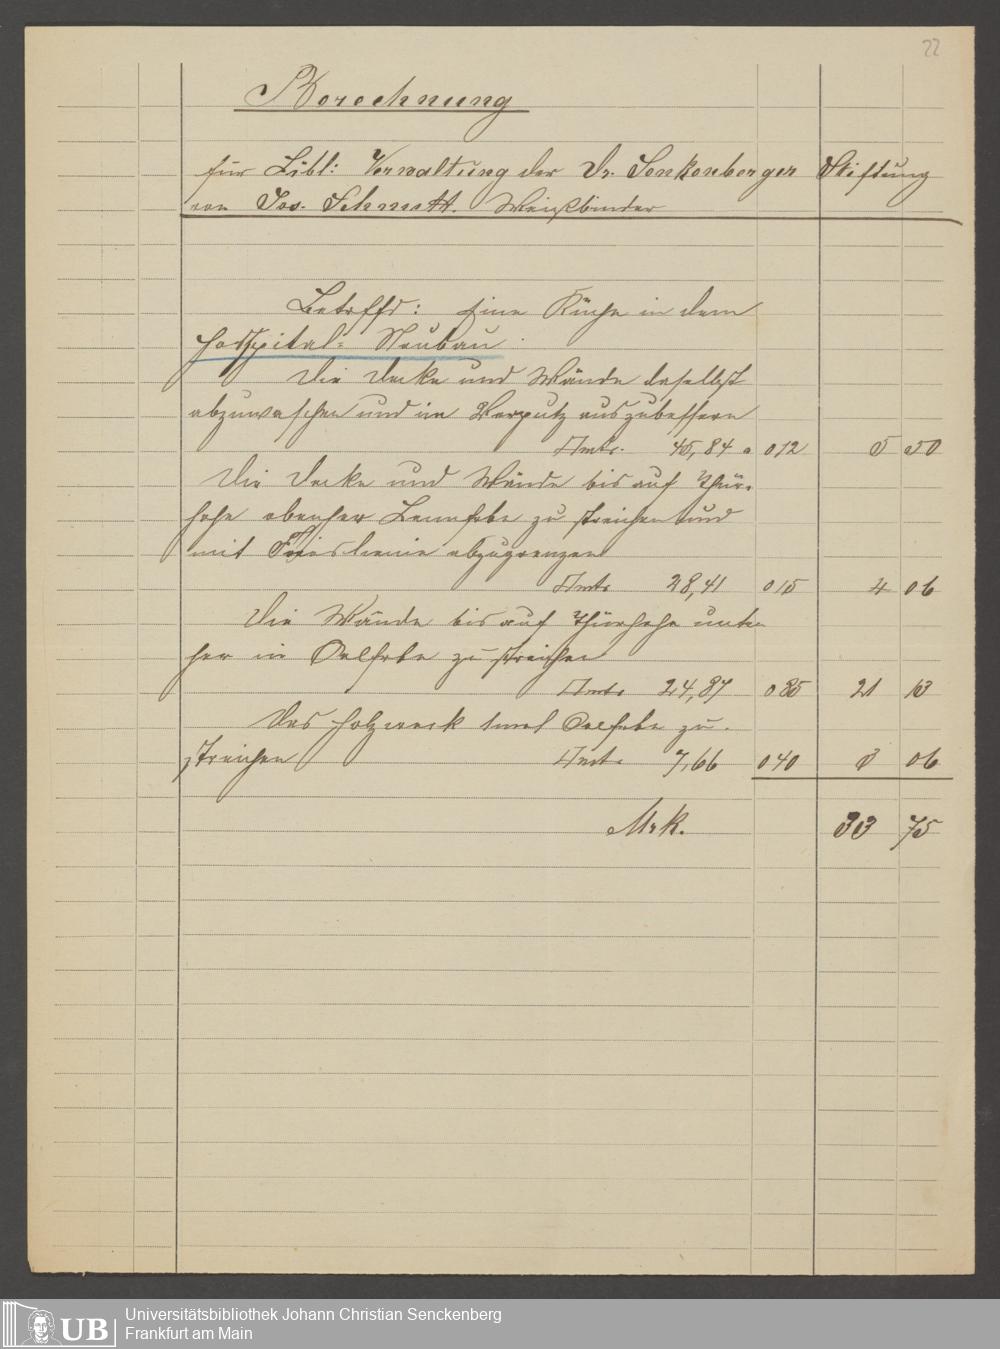 22
Berechnung
für Löbl: Verwaltung der Dr. Senkenberger Stiftung
von Jos. Schmitt. Weißbinder
Betrffd: Eine Küche in dem
Hospital= Neubau.
Die Decke und Wände daselbst
abzuwaschen und im Verputz auszubessern
□mtr. 45,84 a 012 5 50
Die Decke und Wände bis auf Thür-
höhe obenher Leimfarbe zu streichen und
mit Frieslienie abzugrenzen
□mtr 28,41 015 4 06
Die Wände bis auf Thürhöhe unten
her in Oelfarbe zu streichen
□mtr 24,87 085 21 13
Das Holzwerk 1mal Oelfarbe zu
streichen □mtr 7,66 040 3 06
Mrk. 33 75
UB
Universitätsbibliothek Johann Christian Senckenberg
Frankfurt am Main